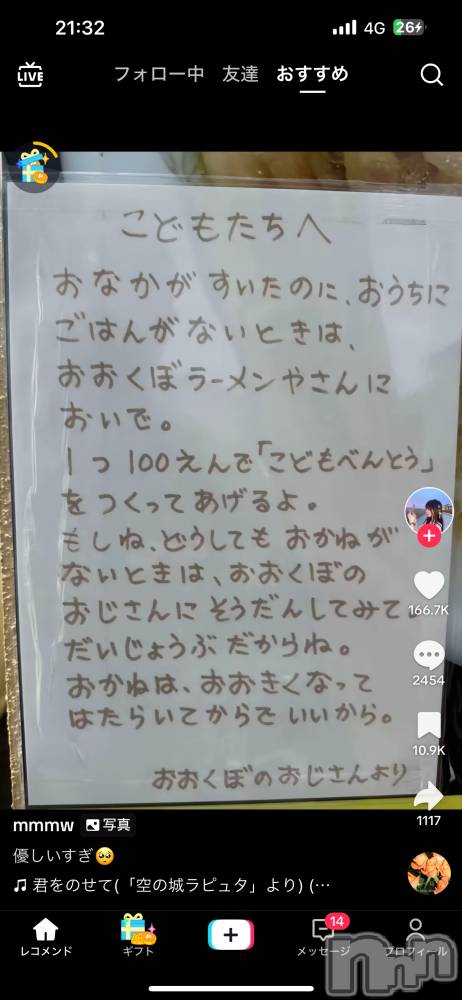 21:32
4G
26
LIVE
フォロー中 友達 おすすめ
こどもたちへ
おなかがすいたのに、おうちに
ごはんがないときは、
おおくぼラーメンやさんに
おいで。
1つ100えんで「こどもべんとう」
をつくってあげるよ。
もしね、どうしてもおかねが
ないときは、おおくぼの
おじさんにそうだんしてみて
だいじょうぶだからね。
おかねは、おおきくなって
はたらいてからでいいから。
おおくぼのおじさんより
166.7K
2454
10.9K
1117
mmmw 写真
優しいすぎ🥺
君をのせて(「空の城ラピュタ」より) (…
14
レコメンド ギフト メッセージ プロフィール